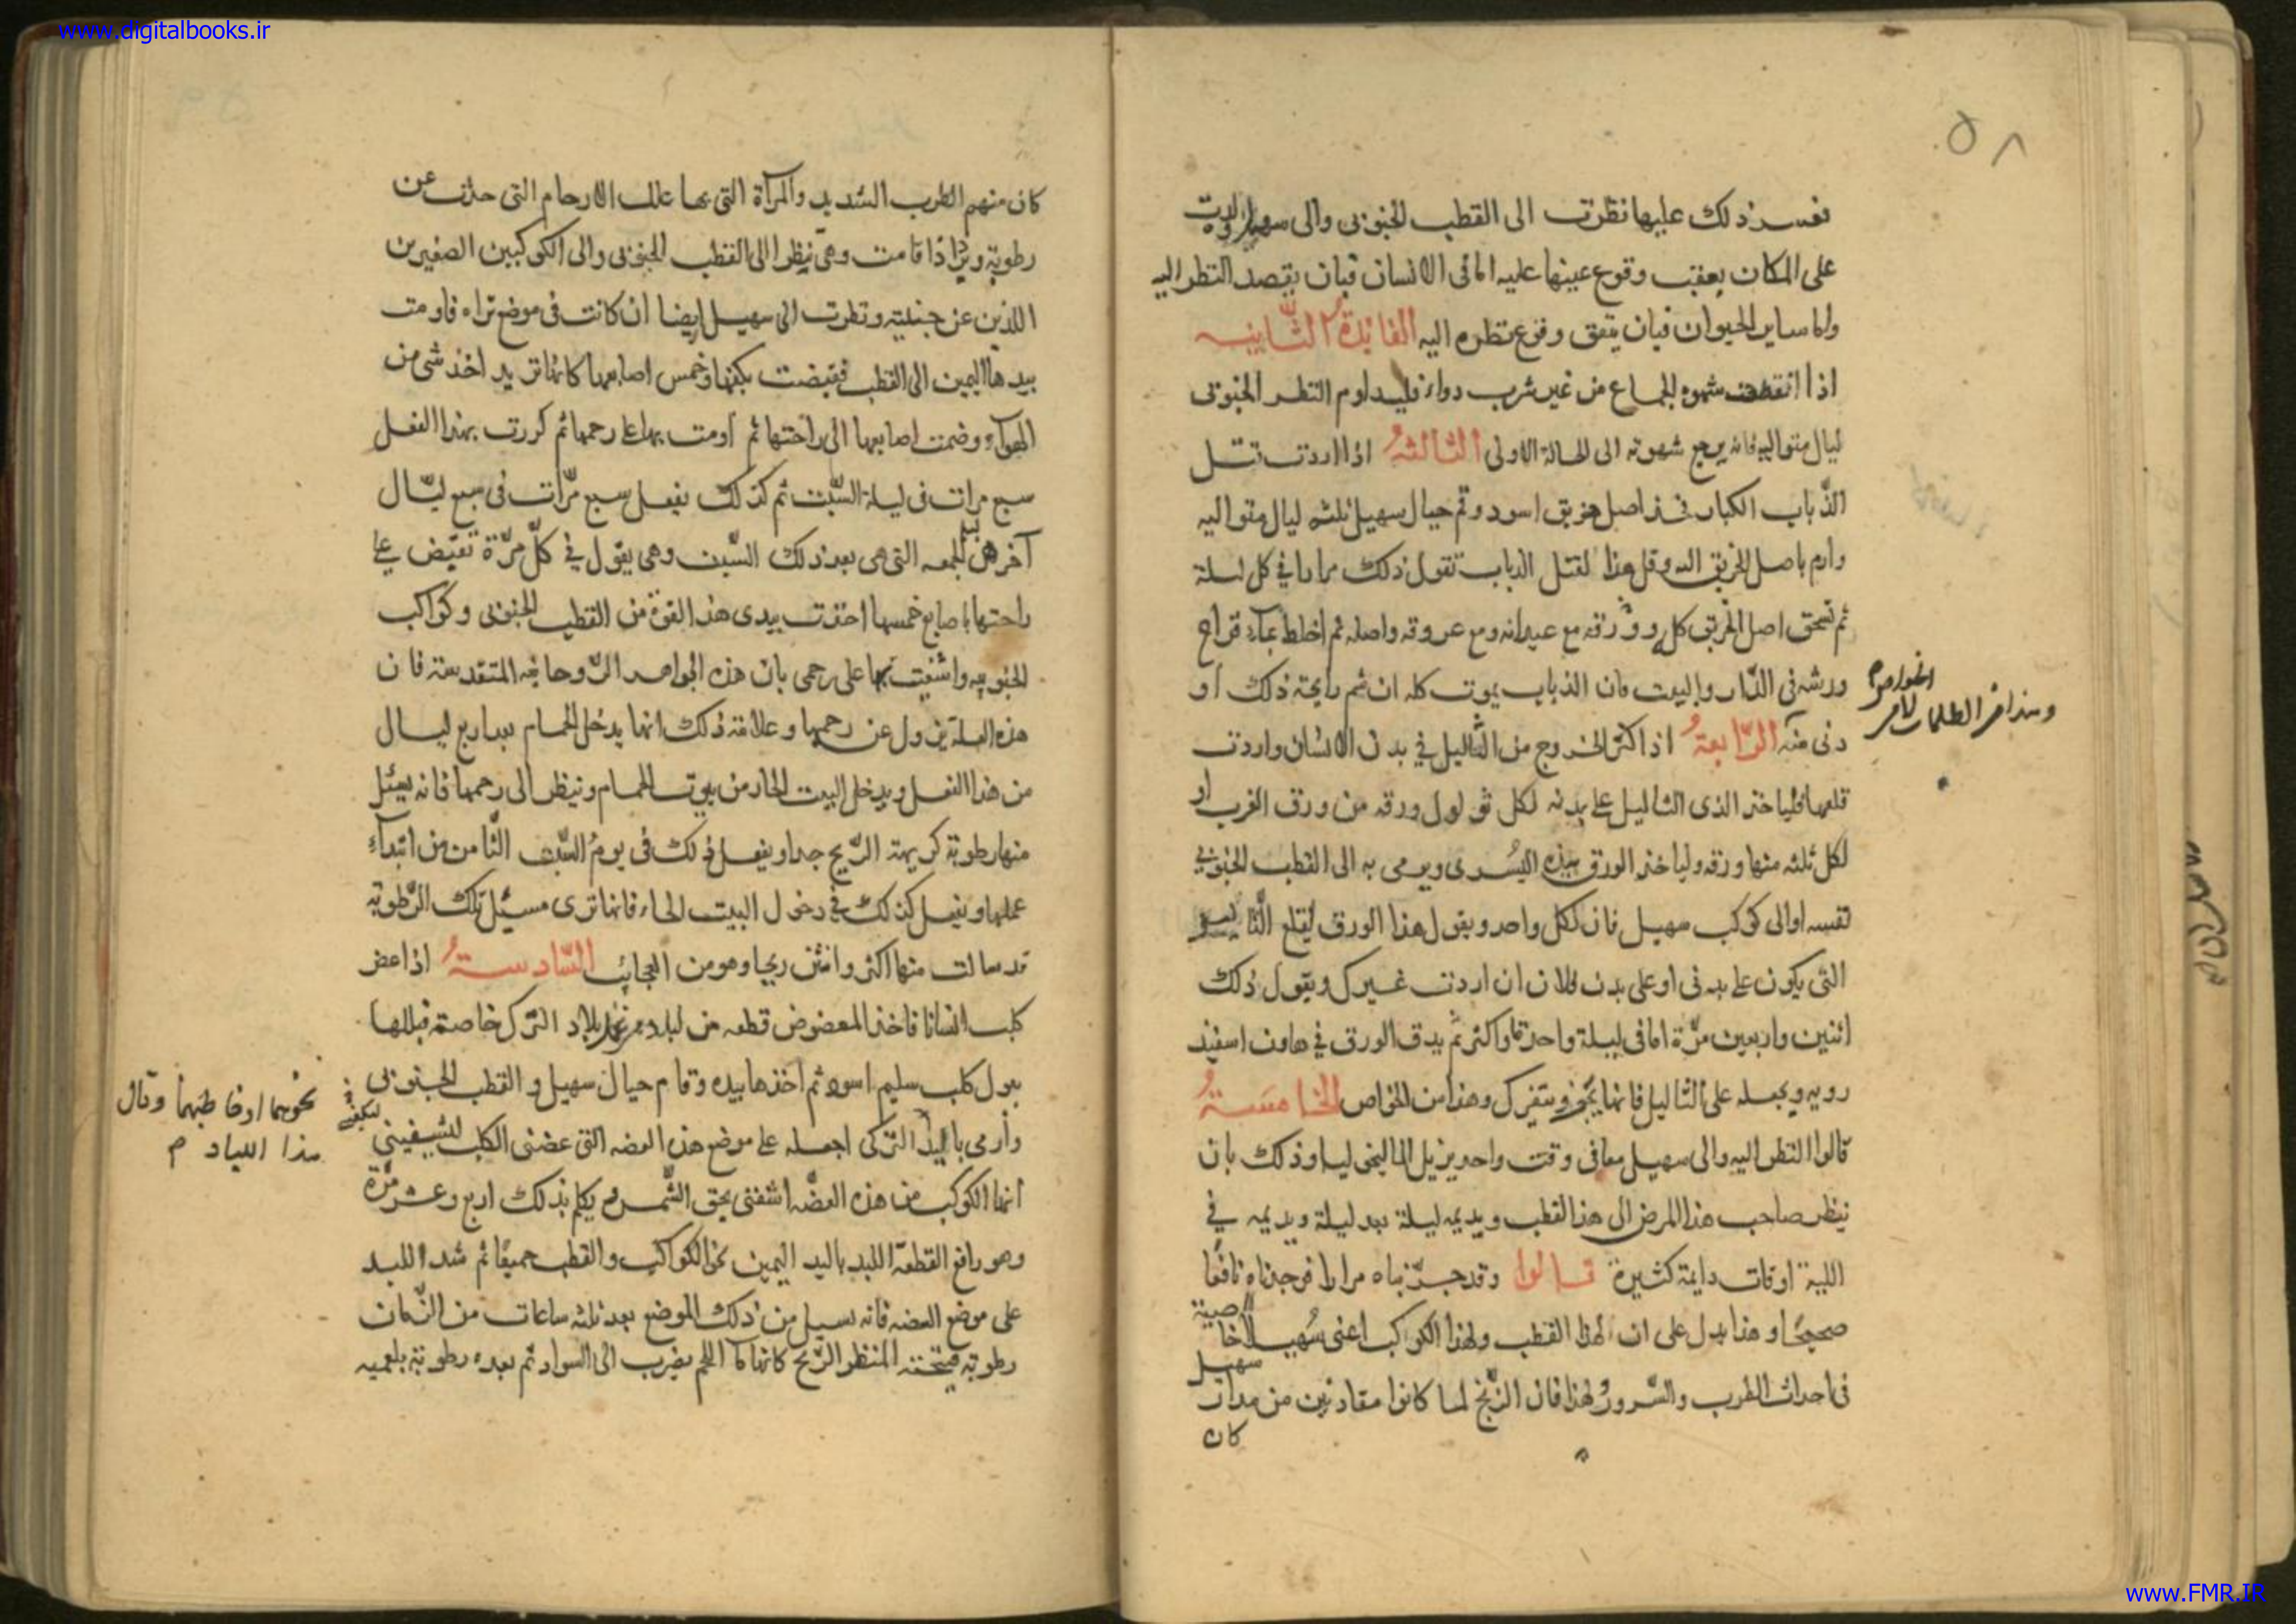 ۵۸
فعسر ذلك عليها نظرت الى القطب الجنوبى والى سهيل ولدت
على المكان بعقب وقوع عينها عليه اما فى الانسان فبان يقصد النظر اليه
واما ساير الحيوان فبان يتفق وقوع نظره اليه الفايدة الثانيه
اذا انقطعت شهوه الجماع من غير شرب دواء فليداوم النظر الجنوبى
ليال متواليه فانه يرجع شهوته الى الحالة الاولى الثالثة اذا اردت تقتل
الذباب الكبار فخذ اصل خربق اسود وقم حيال سهيل ثلثه ليال متواليه
وارم باصل الخربق اليه وقل هذا لقتل الذباب تقول ذلك مرارا فى كل ليلة
ثم تسحق اصل الخربق كله وورقه مع عيدانه ومع عروقه واصله ثم اخلط بماء قراح
ورشه فى الدار والبيت فان الذباب يموت كله ان شم رايحة ذلك او
دنى منه الرابعة اذا كثر الخروج من الثاليل فى بدن الانسان واردت
قلعها فلياخذ الذى الثاليل على بدنه لكل ثولول ورقه من ورق الغرب او
لكل ثلثه منها ورقه ولياخذ الورق بيده اليسرى ويومى به الى القطب الجنوبى
نفسه او الى كوكب سهيل فان لكل واحد ويقول هذا الورق لقلع الثاليل
التى يكون على بدنى او على بدن فلان ان اردت غيرك ويقول ذلك
اثنين واربعين مرة اما فى ليلة واحدة او اكثر ثم يدق الورق فى هاون اسفيد
رويه ويجعله على الثاليل فانها يجف ويتفرك وهذا من الخواص الخامسة
قالوا النظر اليه والى سهيل معا فى وقت واحد يزيل الماليخوليا وذلك بان
ينظر صاحب هذا المرض الى هذا القطب ويديمه ليلة بعد ليلة ويديمه فى
الليلة اوقات دايمة كثيرة قالوا وقد جربناه مرارا فوجدناه نافعا
صحيحا وهذا يدل على ان لهذا القطب ولهذا الكوكب اعنى سهيلا خاصية
فى احداث الطرب والسرور ولهذا فان الزنج لما كانوا مقارنين من مدار سهيل
كان
كان منهم الطرب الشديد والمرآة التى بها علل الارحام التى حدثت عن
رطوبة ونز اذا قامت وهى ينظر الى القطب الجنوبى والى الكوكبين الصغيرين
اللذين عن جنبيته ونظرت الى سهيل ايضا ان كانت فى موضع تراه فاومت
بيدها اليمين الى القطب فقبضت بكفها وخمس اصابعها كانها تريد اخذ شى من
الهواء وضمت اصابعها الى راحتها ثم اومت بها على رحمها ثم كررت بهذا الفعل
سبع مرات فى ليلة السبت ثم كذلك يفعل سبع مرات فى سبع ليال
آخرهن الجمعه التى هى بعد ذلك السبت وهى يقول فى كل مرة تقبض على
راحتها باصابع خمسها اخذت بيدى هذه القوة من القطب الجنوبى وكواكب
الجنوبيه واشفيت بها على رحمى بان هذه الجواهر الروحانيه المتقدسة فان
هذه العلة يزول عن رحمها وعلامة ذلك انها يدخل الحمام بعد اربع ليال
من هذا الفعل ويدخل البيت الحار من بيوت الحمام وينظر الى رحمها فانه يسئل
منها رطوبة كريهة الريح جدا ويفعل ذلك فى يوم السبت الثامن من ابتداء
عملها ويفعل كذلك فى دخول البيت الحار فانها ترى مسيل تلك الرطوبة
قد سالت منها اكثر وانتن ريحا وهو من العجائب السادسة اذا عض
كلب انسانا فاخذ المعضوض قطعه من لبد بلاد الترك خاصة فبللها
ببول كلب سليم اسود ثم اخذها بيده وقام حيال سهيل والقطب الجنوبى
وأرمى باليد التركى اجعله على موضع هذه العضه التى عضنى الكلب ليشفينى
انها الكوكب من هذه العضه اشفنى بحق الشمس يكلم بذلك اربع وعشر مرة
وهو رافع القطعة اللبد باليد اليمين نحو الكواكب والقطب جميعا ثم شد اللبد
على موضع العضه فانه يسيل من ذلك الموضع بعد ثلثه ساعات من الزمان
رطوبة المنظر الريح كانها ماء اللحم يضرب الى السواد ثم بعده رطوبة بلغميه
نحوهما او مخاطبهما وقال
هذا اللباد م
www.digitalbooks.ir
www.FMR.IR